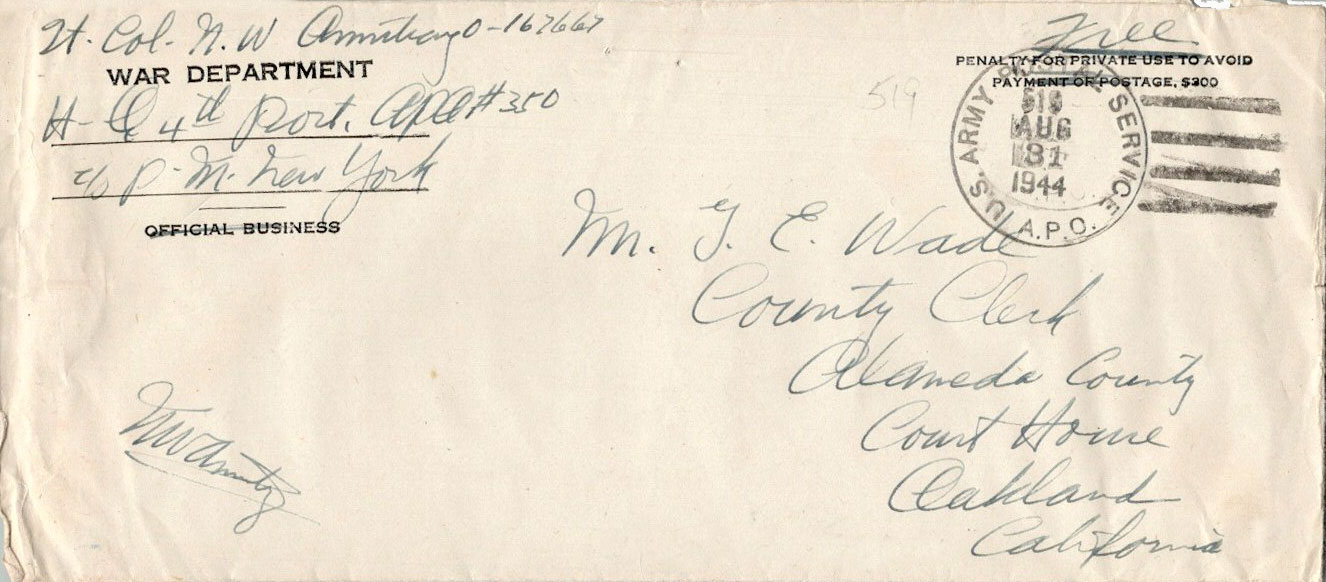 Lt. Col. N. W Armstrong O-167667
WAR DEPARTMENT
H-Q 4th Port, APO #350
c/o P. M. New York
OFFICIAL BUSINESS
Free
PENALTY FOR PRIVATE USE TO AVOID
PAYMENT OF POSTAGE, $300
519
U.S. ARMY POSTAL SERVICE
519
AUG
31
1944
A.P.O.
Mr. G. E. Wade
County Clerk
Alameda County
Court House
Oakland
California